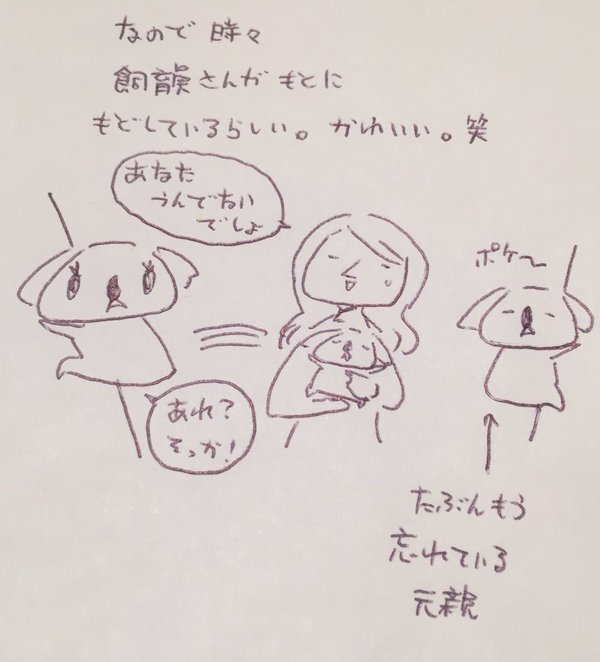 なので 時々
飼育員さんが もとに
もどしているらしい。かわいい。笑
あなた
うんでない
でしょ
ポケ〜
あれ?
そっか!
たぶんもう
忘れている
元親